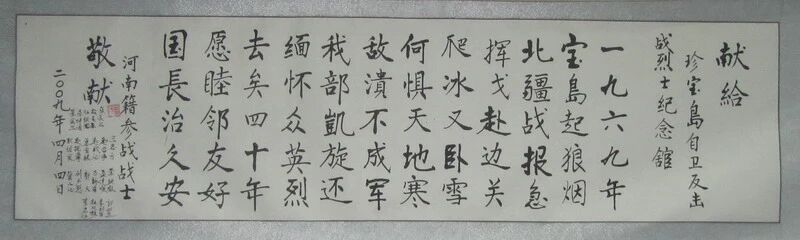 献给
珍宝岛自卫反击
战烈士纪念舘
一九六九年
宝岛起狼烟
北疆战报急
挥戈赴边关
爬冰又卧雪
何惧天地寒
敌溃不成军
我部凱旋还
缅怀众英烈
去矣四十年
愿睦邻友好
国長治久安
河南籍参战战士
敬献
二〇〇九年四月四日